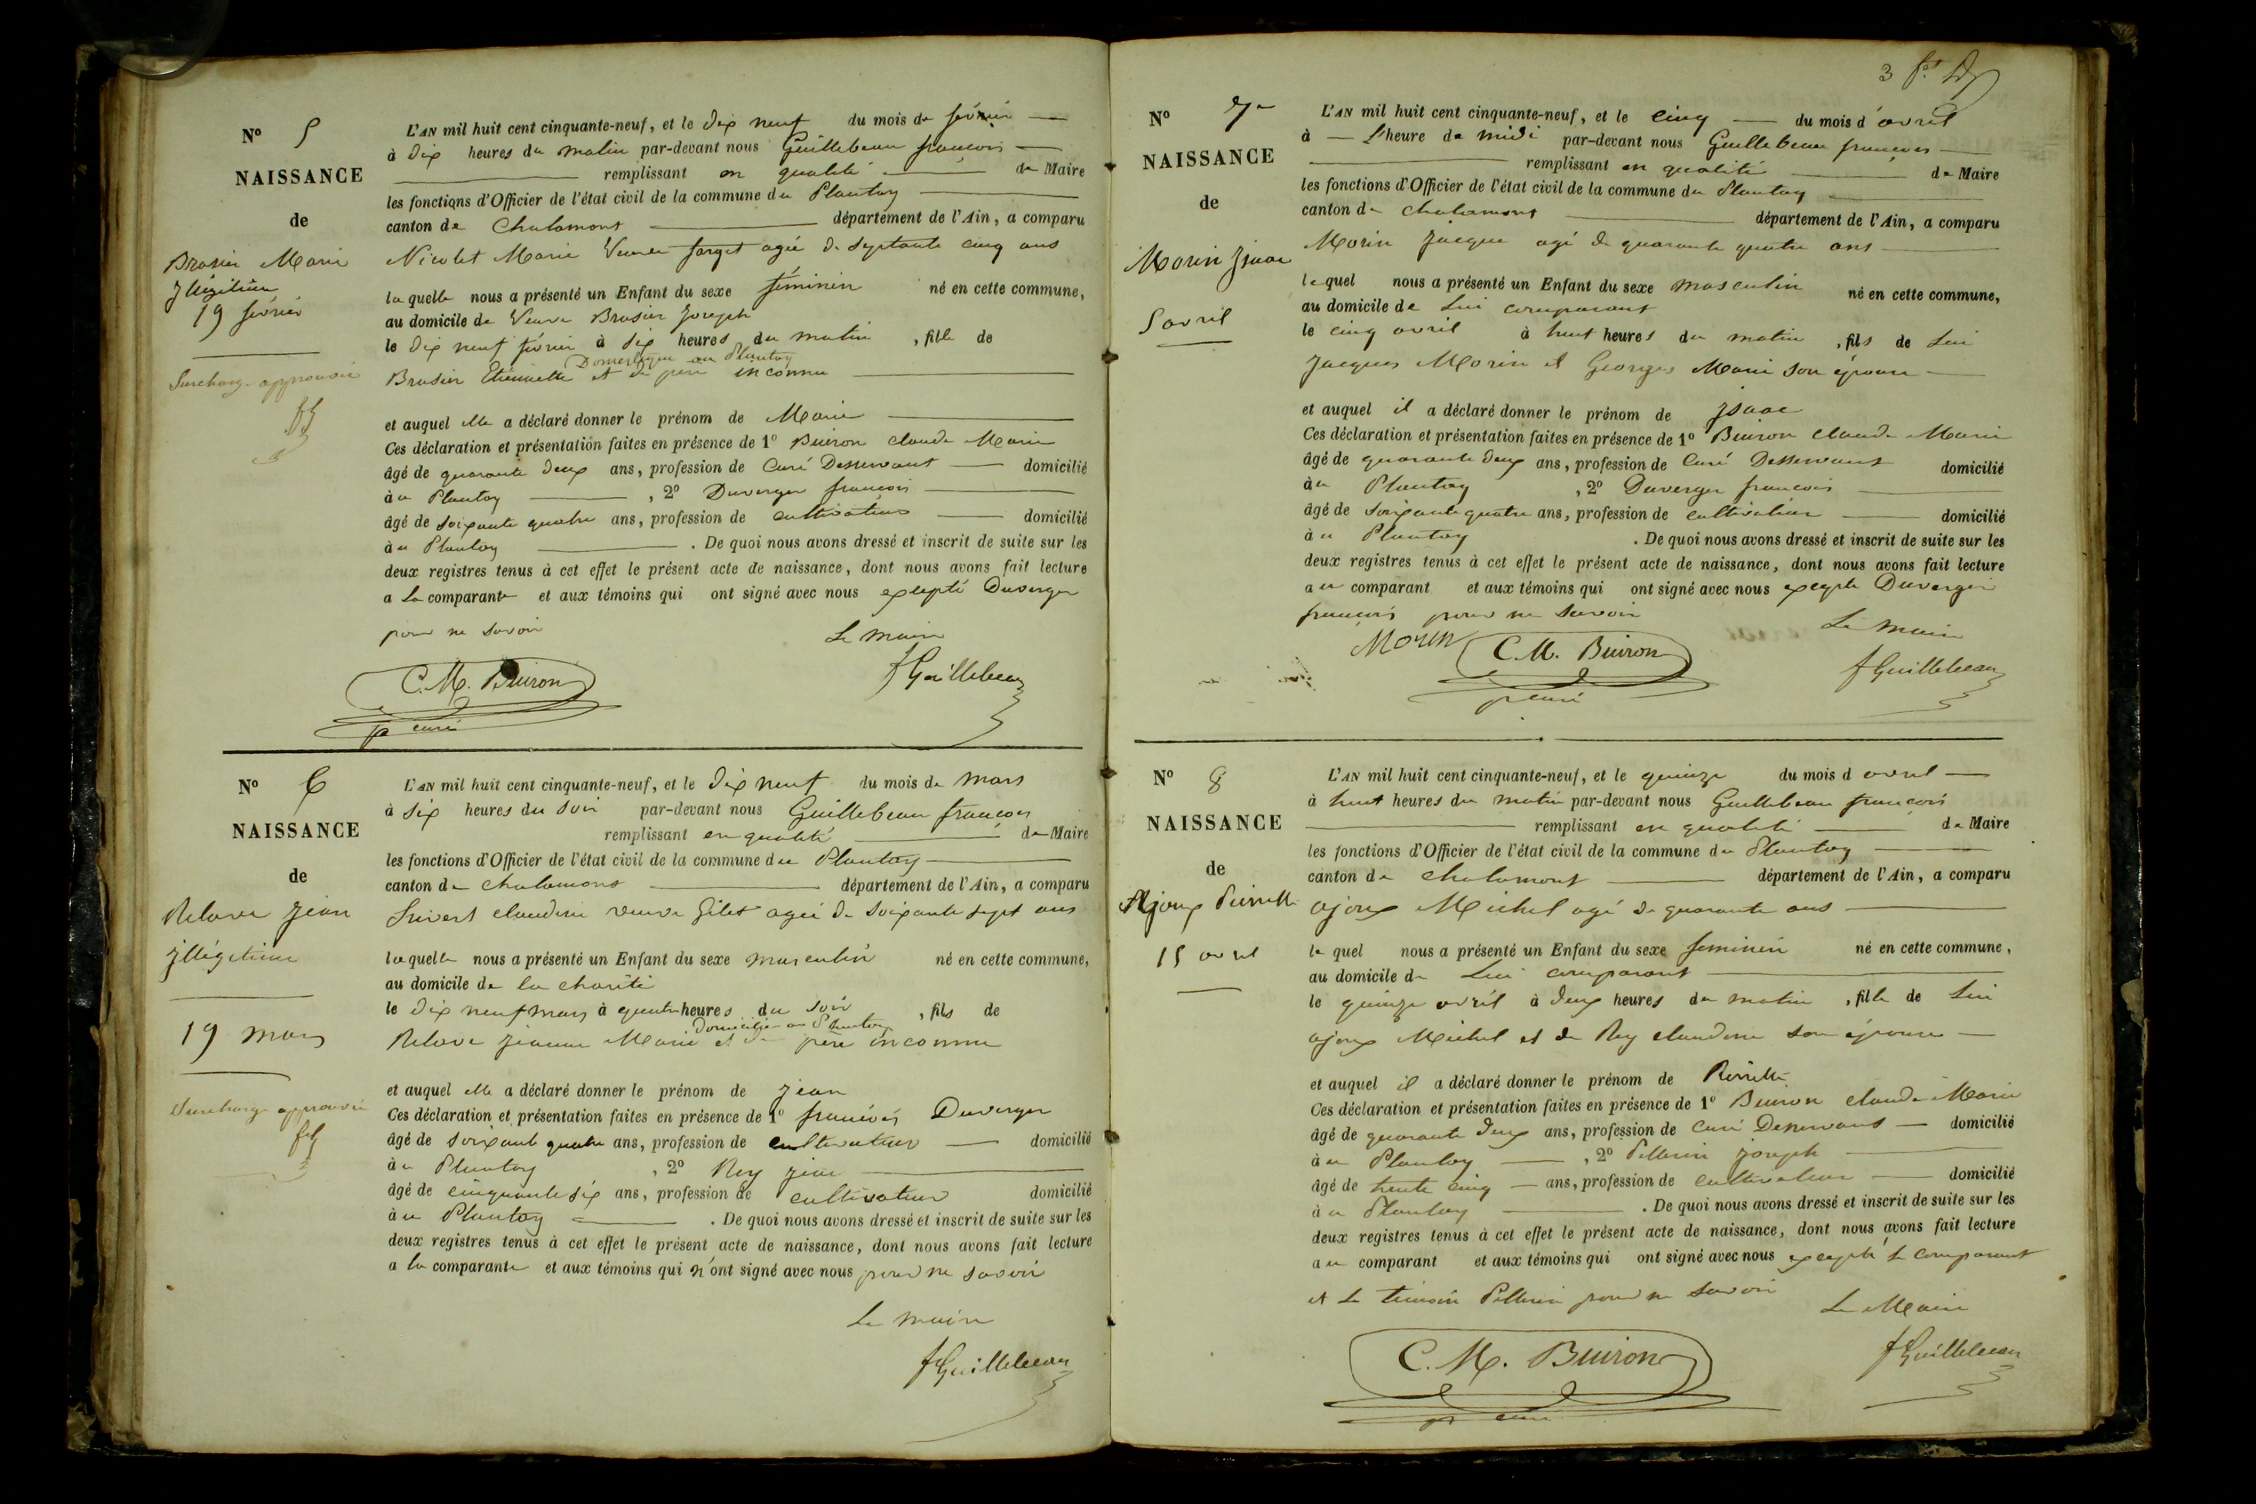 N° 5
NAISSANCE
de
Brasier Marie
Illégitime
19 février
Surcharge approuvée
L'AN mil huit cent cinquante-neuf, et le dix neuf du mois de février
à dix heures du matin par-devant nous Guillebeau françois
remplissant en qualité de Maire
les fonctions d'Officier de l'état civil de la commune du Plantay
canton de Chalamont département de l'Ain, a comparu
Nicolet Marie Veuve forget agée de septante cinq ans
laquelle nous a présenté un Enfant du sexe féminin né en cette commune,
au domicile de Veuve Brasier Joseph
le dix neuf février à dix heures du matin, fille de
Domestique au Plantay
Brasier Etiennette et de père inconnu
et auquel elle a déclaré donner le prénom de Marie
Ces déclaration et présentation faites en présence de 1° Buiron claude Marie
âgé de quarante deux ans, profession de Curé Desservant domicilié
à u Plantay, 2° Duverger françois
âgé de soixante quatre ans, profession de cultivateur domicilié
à u Plantay. De quoi nous avons dressé et inscrit de suite sur les
deux registres tenus à cet effet le présent acte de naissance, dont nous avons fait lecture
a la comparante et aux témoins qui ont signé avec nous excepté Duverger
pour ne savoir
Le maire
C. M. Buiron
curé
f Guillebeau
N° 6
NAISSANCE
de
Relave Jean
Illégitime
19 mars
Surcharge approuvée
L'AN mil huit cent cinquante-neuf, et le dix neuf du mois de mars
à six heures du soir par-devant nous Guillebeau françois
remplissant en qualité de Maire
les fonctions d'Officier de l'état civil de la commune du Plantay
canton de chalamont département de l'Ain, a comparu
claudine veuve Gilet agée de soixante sept ans
laquelle nous a présenté un Enfant du sexe masculin né en cette commune,
au domicile de la charité
le dix neuf mars à quatre heures du soir, fils de
Domiciliée au Plantay
Relave Jeanne Marie et de père inconnu
et auquel elle a déclaré donner le prénom de Jean
Ces déclaration et présentation faites en présence de 1° françois Duverger
âgé de soixante quatre ans, profession de cultivateur domicilié
à u Plantay, 2° Rey Jean
âgé de cinquante six ans, profession de cultivateur domicilié
à u Plantay. De quoi nous avons dressé et inscrit de suite sur les
deux registres tenus à cet effet le présent acte de naissance, dont nous avons fait lecture
a la comparante et aux témoins qui n'ont signé avec nous pour ne savoir
Le maire
f Guillebeau
3
N° 7
NAISSANCE
de
Morin Isaac
5 avril
L'AN mil huit cent cinquante-neuf, et le cinq du mois d'avril
à l'heure de midi par-devant nous Guillebeau françois
remplissant en qualité de Maire
les fonctions d'Officier de l'état civil de la commune du Plantay
canton de chalamont département de l'Ain, a comparu
Morin Jacque agé de quarante quatre ans
lequel nous a présenté un Enfant du sexe masculin né en cette commune,
au domicile de Lui comparant
le cinq avril à huit heures du matin, fils de Lui
Jacques Morin et Georges Marie son épouse
et auquel il a déclaré donner le prénom de Isaac
Ces déclaration et présentation faites en présence de 1° Buiron claude Marie
âgé de quarante deux ans, profession de Curé Desservant domicilié
à u Plantay, 2° Duverger francois
âgé de soixante quatre ans, profession de cultivateur domicilié
à u Plantay. De quoi nous avons dressé et inscrit de suite sur les
deux registres tenus à cet effet le présent acte de naissance, dont nous avons fait lecture
a u comparant et aux témoins qui ont signé avec nous excepté Duverger
francois pour ne savoir
Le maire
Morin
C. M. Buiron
curé
f Guillebeau
N° 8
NAISSANCE
de
Ajoux Pierrette
15 avril
L'AN mil huit cent cinquante-neuf, et le quinze du mois d avril
à huit heures du matin par-devant nous Guillebeau françois
remplissant en qualité de Maire
les fonctions d'Officier de l'état civil de la commune du Plantay
canton de chalamont département de l'Ain, a comparu
ajoux Michel agé de quarante ans
lequel nous a présenté un Enfant du sexe feminin né en cette commune,
au domicile de Lui comparant
le quinze avril à deux heures du matin, fille de Lui
ajoux Michel et de Rey claudine son épouse
et auquel il a déclaré donner le prénom de Pierrette
Ces déclaration et présentation faites en présence de 1° Buiron claude Marie
âgé de quarante deux ans, profession de curé Desservant domicilié
à u Plantay, 2° Pellerin Joseph
âgé de trente cinq ans, profession de cultivateur domicilié
à u Plantay. De quoi nous avons dressé et inscrit de suite sur les
deux registres tenus à cet effet le présent acte de naissance, dont nous avons fait lecture
a u comparant et aux témoins qui ont signé avec nous excepté le comparant
et le temoin Pellerin pour ne savoir
Le Maire
C. M. Buiron
curé
f Guillebeau